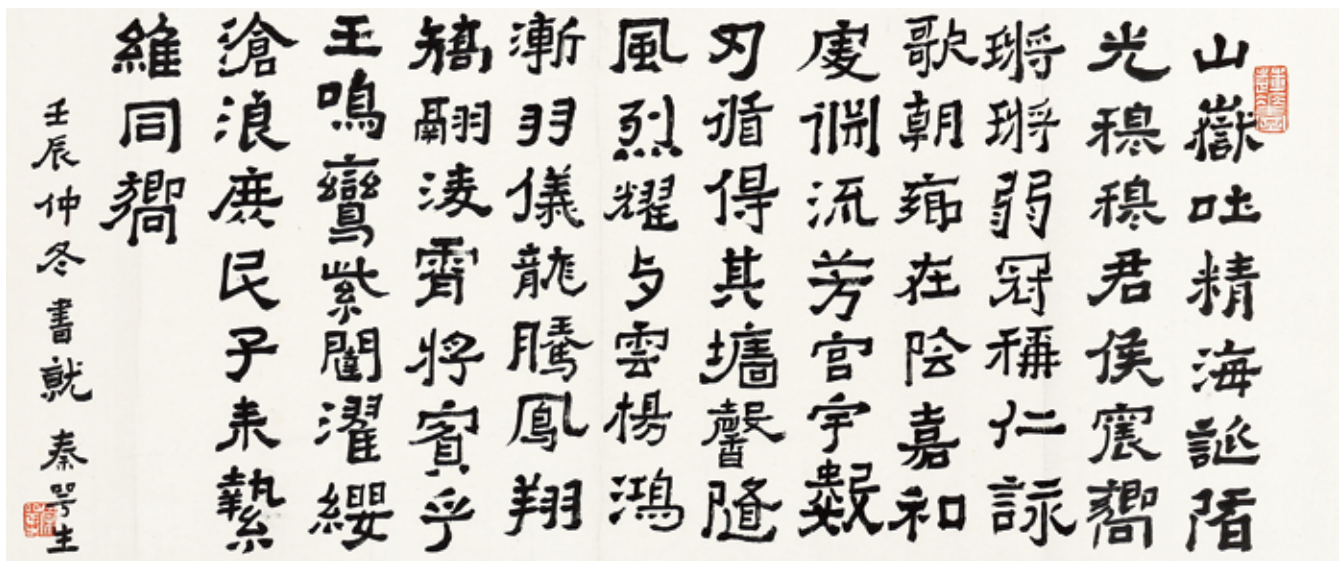 山嶽吐精海誕陼
光穆穆君侯震嚮
鏘鏘弱冠稱仁詠
歌朝鄉在陰嘉和
處淵流芳宮宇數
刃循得其墻馨隨
風烈耀与雲楊鴻
漸羽儀龍騰鳳翔
矯翮淩霄將賓乎
王鳴鸞紫闥濯纓
滄浪庶民子來縶
維同嚮
壬辰仲冬書就 秦咢生